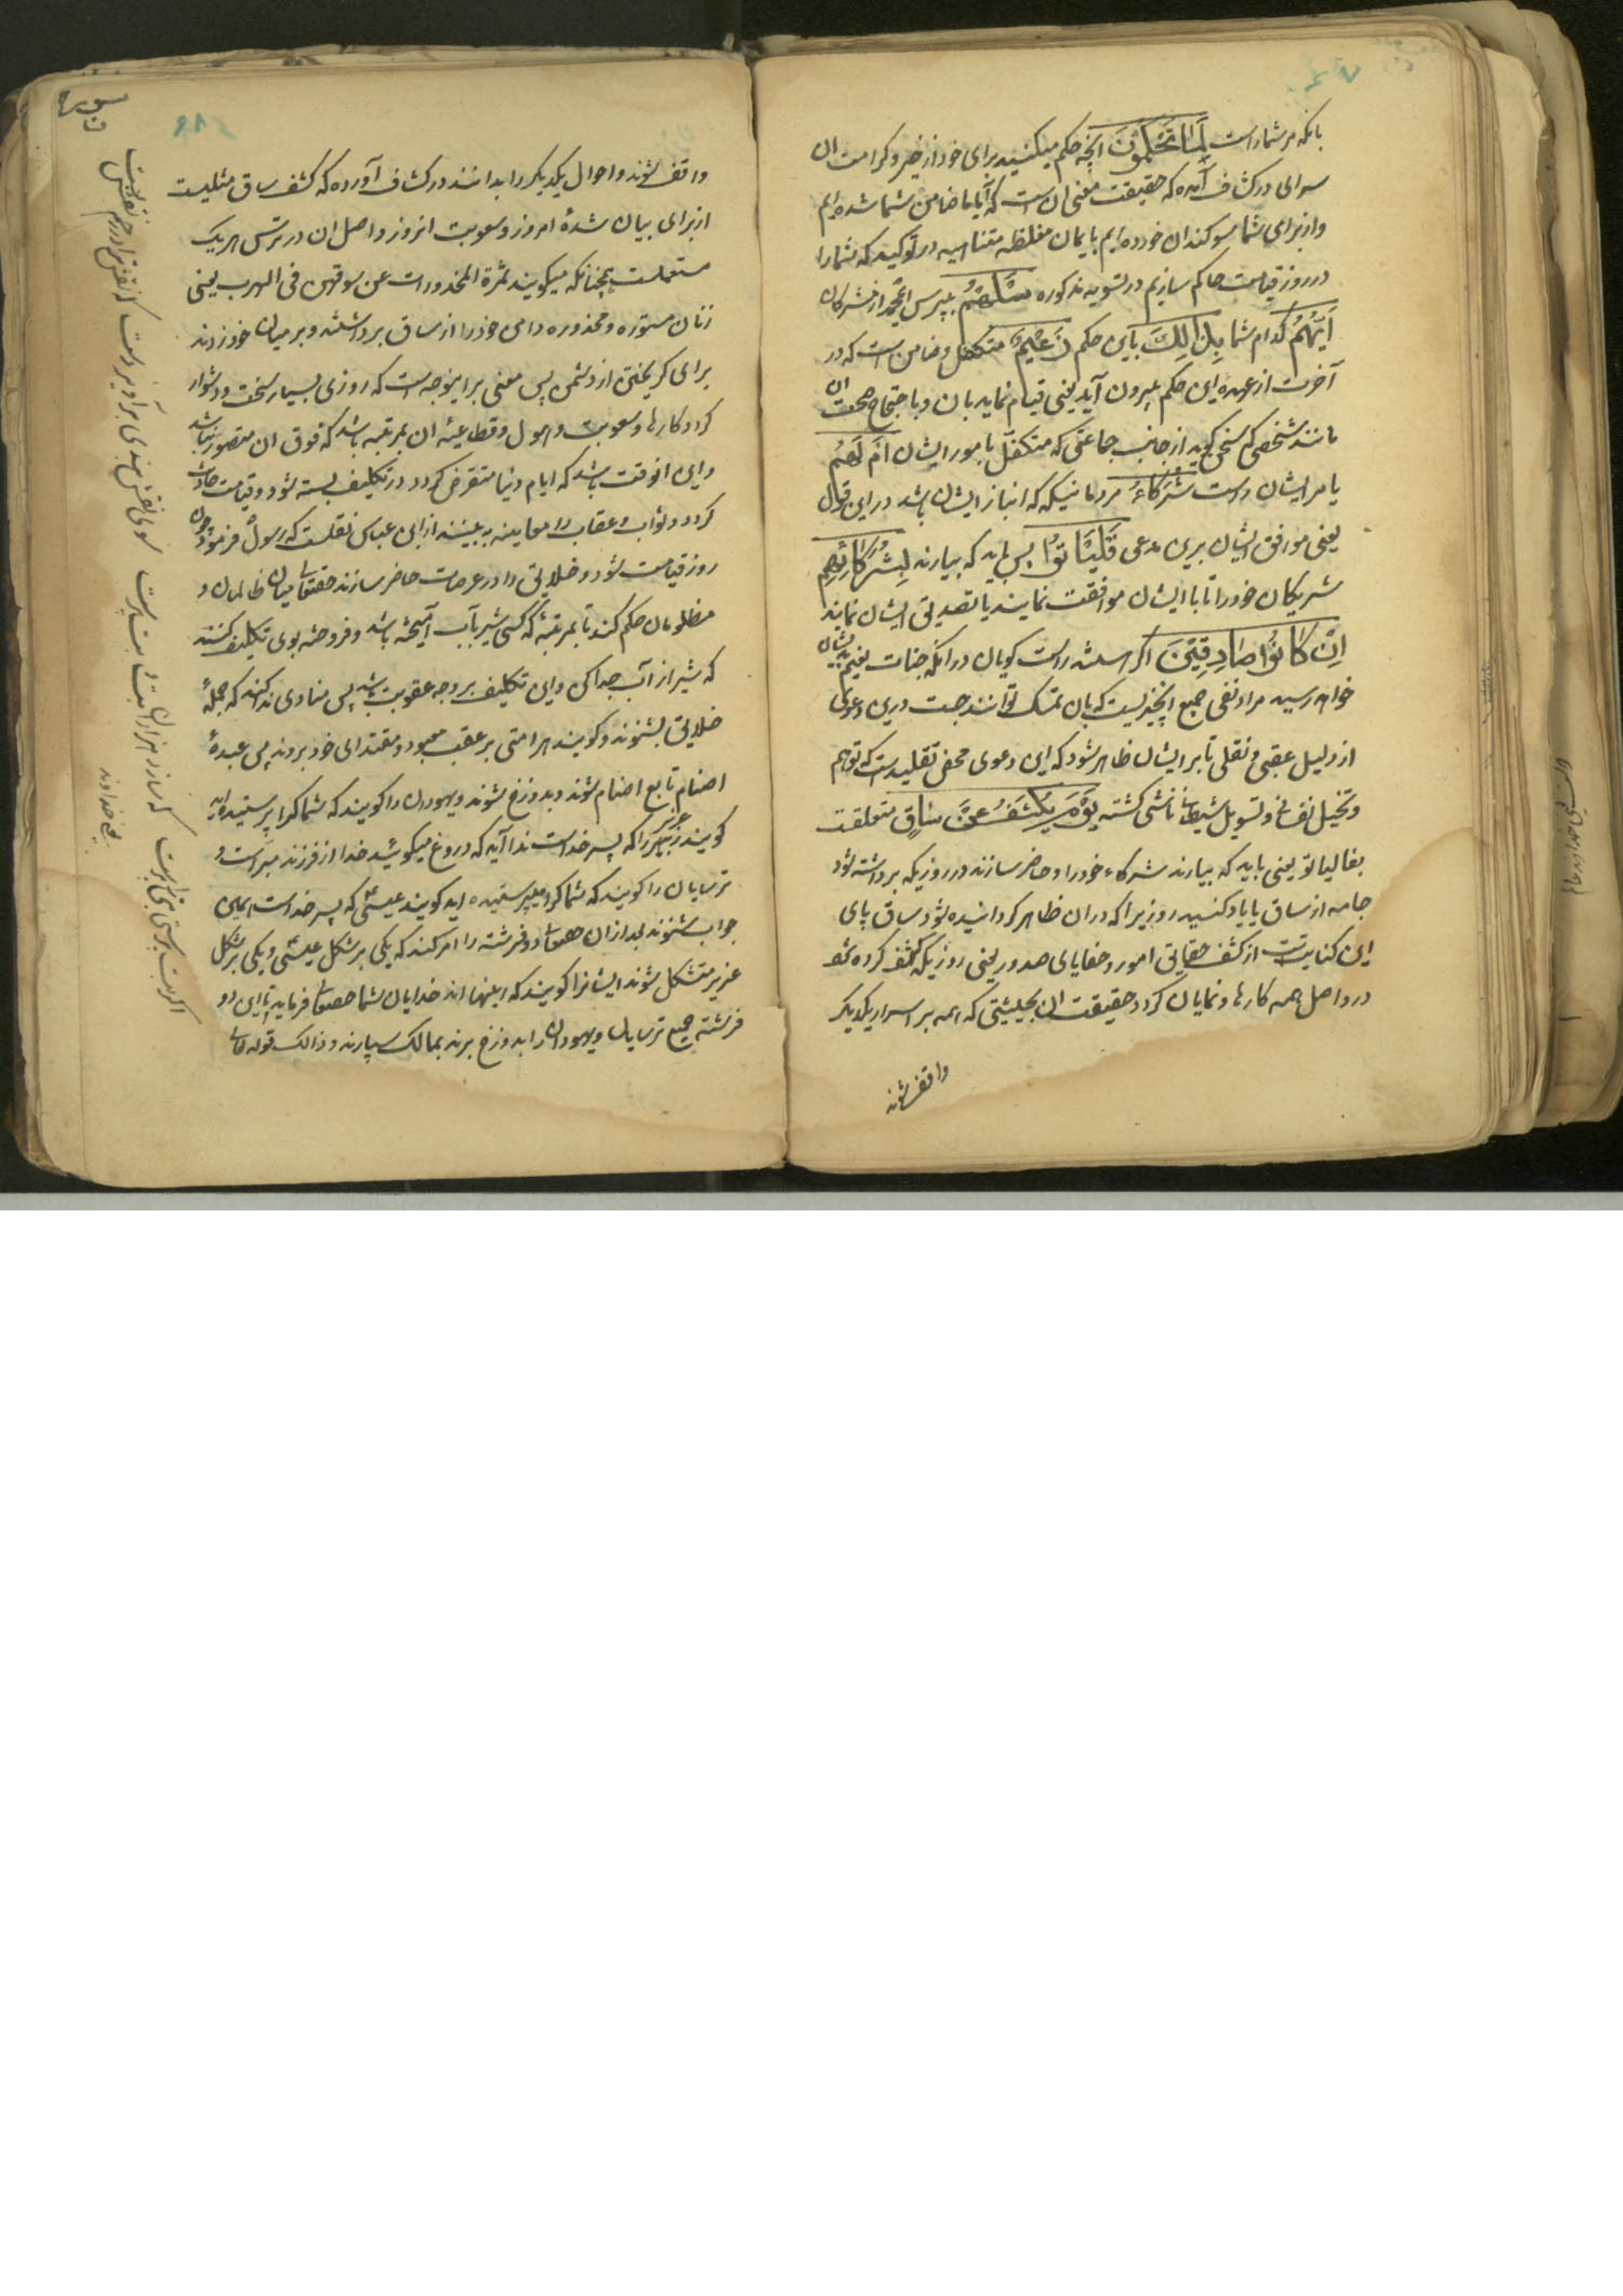 بانکه مر شما راست لَمَا تَحْكُمُونَ آنچه حکم میکنید برای خود از خیر و کرامت ان
سرای در کشاف آمده که حقیقت معنی ان است که آیا ما ضامن شما شده ایم
و از برای شما سوکندان خورده ایم بایمان مغلظه متناهیه در توکید که شما را
در روز قیامت حاکم سازیم در تسویه مذکوره سَلْهُمْ بپرس ای محمد از مشرکان
أَيُّهُمْ کدام شما بِذَالِكَ باین حکم زَعِيمٌ متکفل و ضامن است که در
آخرت از عهده این حکم بیرون آید یعنی قیام نماید بان و باحتجاج صحت ان
مانند شخصی که سخن کوید از جانب جماعتی که متکفل بامور ایشان أَمْ لَهُمْ
یا مر ایشان راست شُرَكَاءُ مردمانیکه که انباز ایشان باشد در این قول
یعنی موافق ایشان برین مدعی فَلْيَأْتُوا پس باید که بیارند بِشُرَكَائِهِمْ
شریکان خود را تا با ایشان موافقت نمایند یا تصدیق ایشان نمایند
إِنْ كَانُوا صَادِقِينَ اکر هستند راست کویان در آنکه جنات نعیم بدیشان
خواهد رسید مراد نفی جمیع آنچیزیست که بان تمسک توانند جست درین دعوی
از دلیل عقلی و نقلی تا بر ایشان ظاهر شود که این دعوی محض تقلیدست که توهم
و تخیل نفسانی و تسویل شیطانی ناشی کشته يَوْمَ يُكْشَفُ عَنْ سَاقٍ متعلقت
بفالیاتو یعنی باید که بیارند شرکاء خود را و حاضر سازند در روزیکه برداشته شود
جامه از ساق یا یاد کنید روزیرا که در ان ظاهر کردانیده شود ساق پای
این کنایتست از کشف حقایق امور و خفایای صدور یعنی روزیکه کشف کرده شود
در و اصل همه کارها و نمایان کردد حقیقت ان بحیثیتی که همه بر اسرار یکدیکر
واقف شوند
واقف شوند و احوال یکدیکر را بدانند در کشاف آورده که کشف ساق مثلیست
از برای بیان شدة امر روز و سعوبت انروز و اصل ان در ترس هر یک
مستعملست چنانکه میکویند ثمرة المخدورات عن سوقهن فی الهرب یعنی
زنان مستوره و مخذوره دامن خود را از ساق برداشتند و بر میان خود زدند
برای کریختن از دشمن پس معنی برینوجه است که روزی بسیار سخت و دشوار
کردد کارها و سعوبت و هول و قطاعیه ان بمرتبه باشد که فوق ان متصور نباشد
و این انوقت باشد که ایام دنیا متقرض کردد در تکلیف بسته شود و قیامت حادث
کردد و ثواب و عقاب را معاینه به بینند از ابن عباس نقلست که رسول فرمود چون
روز قیامت شود و خلایق را در عرصات حاضر سازند حقتعالی میان ظالمان و
مظلومان حکم کند تا بمرتبه که کسی شیر بآب آمیخته باشد و فروخته بوی تکلیف کنند
که شیر از آب جدا کن و این تکلیف بر وجه عقوبت باشد پس منادی ندا کند که جمله
خلایق بشنوند و کویند هر امتی بر عقب معبود و مقتدای خود بروند پس عبدهٔ
اصنام تابع اصنام شوند و بدوزخ شوند و یهودان را کویند که شما کرا پرستیده اید
کویند عزیر را که پسر خداست ندا آید که دروغ میکوئید خدا از فرزند مبراست و
ترسایان را کویند که شما کرا میپرستیده اید کویند عیسی که پسر خداست همین
جواب شنوند بعد از ان حقتعالی دو فرشته را امر کند که یکی بر شکل عیسی و یکی بر شکل
عزیر متشکل شوند ایشانرا کویند که اینها اند خدایان شما حقتعالی فرماید تا این دو
فرشته جمیع ترسایان و یهودان را بدوزخ برند بمالک سپارند و ذالک قوله تعالی